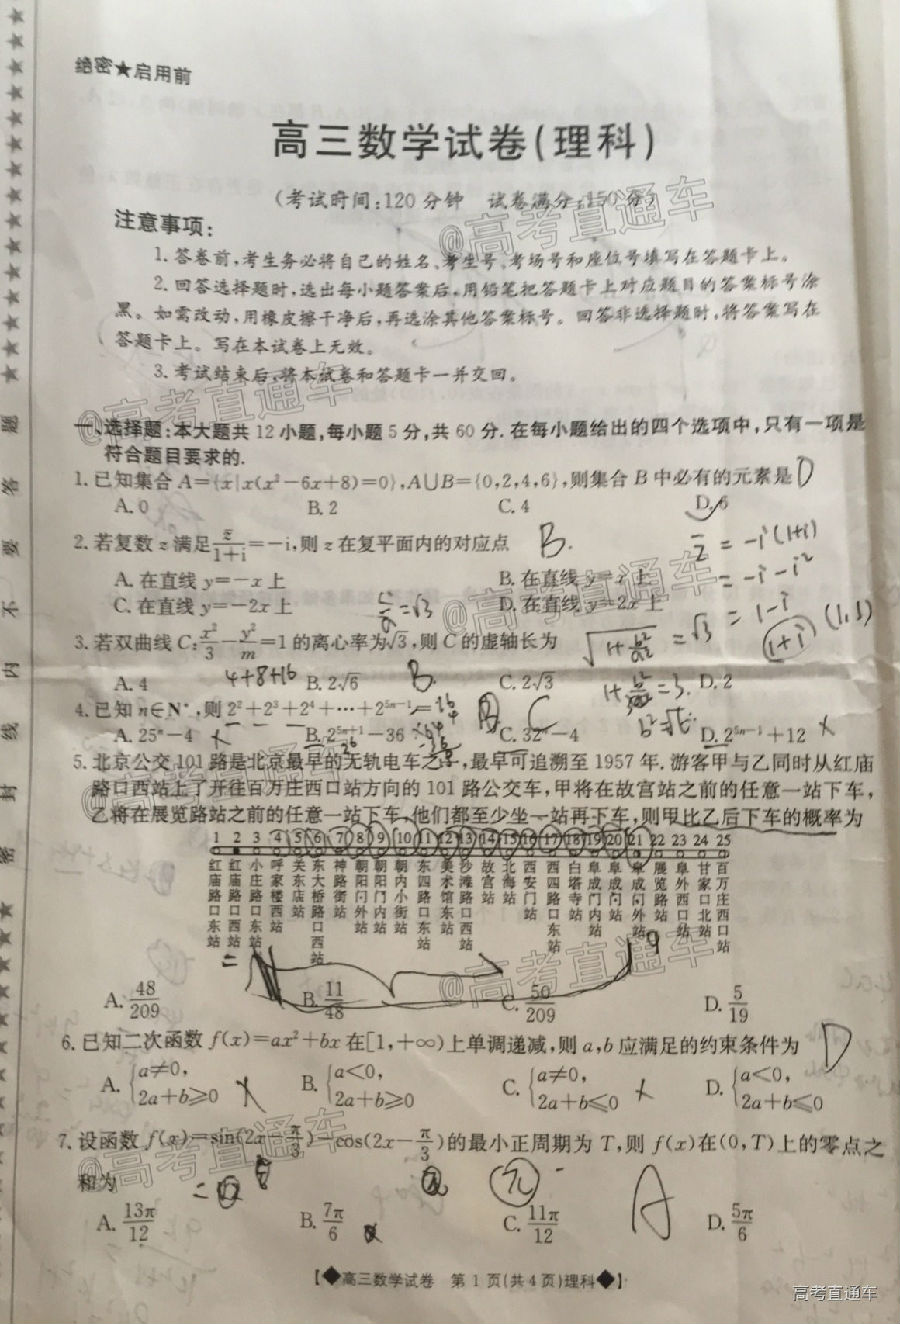 绝密★启用前
高三数学试卷(理科)
(考试时间:120分钟 试卷满分:150分)
注意事项:
1.答卷前,考生务必将自己的姓名、考生号、考场号和座位号填写在答题卡上。
2.回答选择题时,选出每小题答案后,用铅笔把答题卡上对应题目的答案标号涂
黑。如需改动,用橡皮擦干净后,再选涂其他答案标号。回答非选择题时,将答案写在
答题卡上。写在本试卷上无效。
3.考试结束后,将本试卷和答题卡一并交回。
一、选择题:本大题共12小题,每小题5分,共60分.在每小题给出的四个选项中,只有一项是
符合题目要求的.
1.已知集合A={x|x(x²-6x+8)=0},A∪B={0,2,4,6},则集合B中必有的元素是 D
A.0 B.2 C.4 D.6
2.若复数z满足z̄/(1+i)=-i,则z在复平面内的对应点 B.
z̄=-i(1+i)
A.在直线y=-x上 B.在直线y=x上
=-i-i²
C.在直线y=-2x上 D.在直线y=2x上
=1-i
1+i (1,1)
c/a=√3
3.若双曲线C:x²/3-y²/m=1的离心率为√3,则C的虚轴长为
A.4 B.2√6 C.2√3 D.2
4+8+16 B.
4.已知n∈N*,则2²+2³+2⁴+…+2⁵ⁿ⁻¹= C
A.25ⁿ-4 B.2⁵ⁿ⁺¹-36 C.32ⁿ-4 D.2⁵ⁿ⁻¹+12
5.北京公交101路是北京最早的无轨电车之一,最早可追溯至1957年.游客甲与乙同时从红庙
路口西站上了开往百万庄西口站方向的101路公交车,甲将在故宫站之前的任意一站下车,
乙将在展览路站之前的任意一站下车,他们都至少坐一站再下车,则甲比乙后下车的概率为
1 2 3 4 5 6 7 8 9 10 11 12 13 14 15 16 17 18 19 20 21 22 23 24 25
红庙路口东站
红庙路口西站
小庄路口东站
呼家楼西站
关东店站
东大桥路口西站
神路街站
朝阳门外站
朝阳门内站
朝内小街站
东四路口东站
美术馆东站
沙滩路口西站
故宫站
北海站
西安门站
西四路口东站
白塔寺站
阜成门内站
阜成门站
阜成门外站
展览路站
阜外西口站
甘家口北站
百万庄西口站
19
A.48/209 B.11/48 C.50/209 D.5/19
6.已知二次函数f(x)=ax²+bx在[1,+∞)上单调递减,则a,b应满足的约束条件为 D
A.{a≠0, 2a+b≥0 B.{a<0, 2a+b≥0 C.{a≠0, 2a+b≤0 D.{a<0, 2a+b≤0
7.设函数f(x)=sin(2x-π/3)-cos(2x-π/3)的最小正周期为T,则f(x)在(0,T)上的零点之
和为
π A
A.13π/12 B.7π/6 C.11π/12 D.5π/6
【◆高三数学试卷 第1页(共4页)理科◆】
密 封 线 内 不 要 答 题
@高考直通车
@高考直通车
@高考直通车
@高考直通车
@高考直通车
@高考直通车
高考直通车